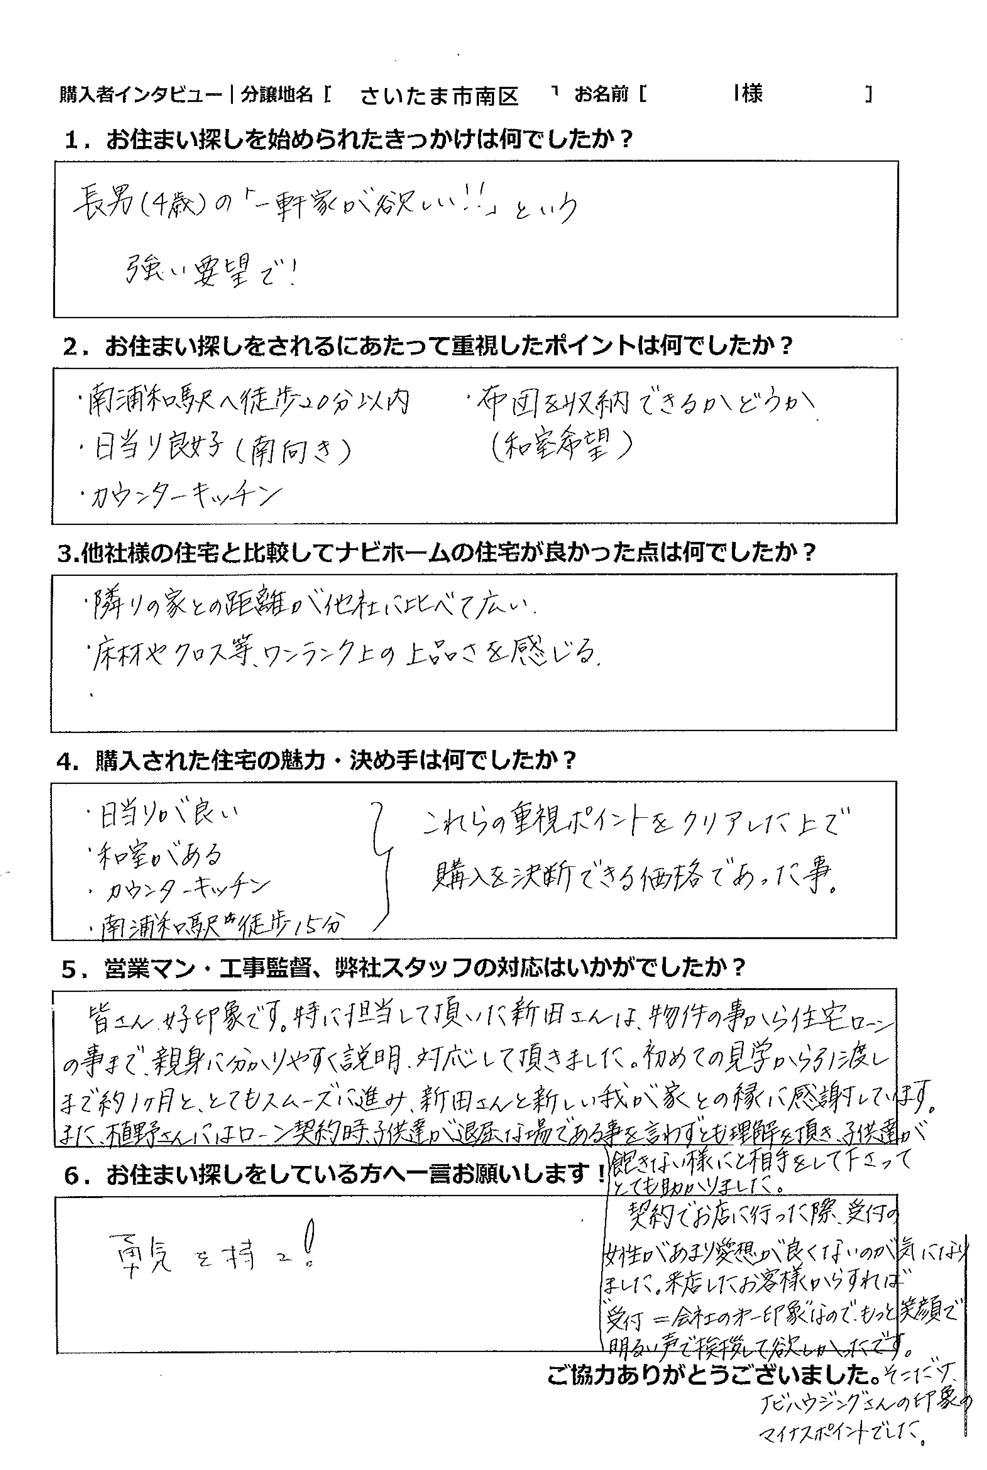 購入者インタビュー｜分譲地名 [ さいたま市南区 ] お名前 [ 様 ]
1．お住まい探しを始められたきっかけは何でしたか？
長男(4歳)の「一軒家が欲しい!!」という
強い要望で!
2．お住まい探しをされるにあたって重視したポイントは何でしたか？
・南浦和駅へ徒歩20分以内
・日当り良好(南向き)
・カウンターキッチン
・布団を収納できるかどうか
(和室希望)
3.他社様の住宅と比較してナビホームの住宅が良かった点は何でしたか？
・隣りの家との距離が他社に比べて広い.
・床材やクロス等、ワンランク上の上品さを感じる.
・
4．購入された住宅の魅力・決め手は何でしたか？
・日当りが良い
・和室がある
・カウンターキッチン
・南浦和駅 徒歩15分
これらの重視ポイントをクリアした上で
購入を決断できる価格であった事。
5．営業マン・工事監督、弊社スタッフの対応はいかがでしたか？
皆さん好印象です。特に担当して頂いた新田さんは、物件の事から住宅ローン
の事まで、親身に分かりやすく説明、対応して頂きました。初めての見学から引渡し
まで約1ヶ月と、とてもスムーズに進み、新田さんと新しい我が家との縁に感謝しています。
また、植野さんにはローン契約時、子供達が退屈な場である事を言わずとも理解を頂き、子供達が
飽きない様にと相手をして下さって
とても助かりました。
契約でお店に行った際、受付の
女性があまり愛想が良くないのが気になり
ました。来店したお客様からすれば
"受付＝会社の第一印象"なので、もっと笑顔で
明るい声で挨拶して欲しかったです。
そこだけ、
ナビハウジングさんの印象の
マイナスポイントでした。
6．お住まい探しをしている方へ一言お願いします！
勇気を持って!
ご協力ありがとうございました。